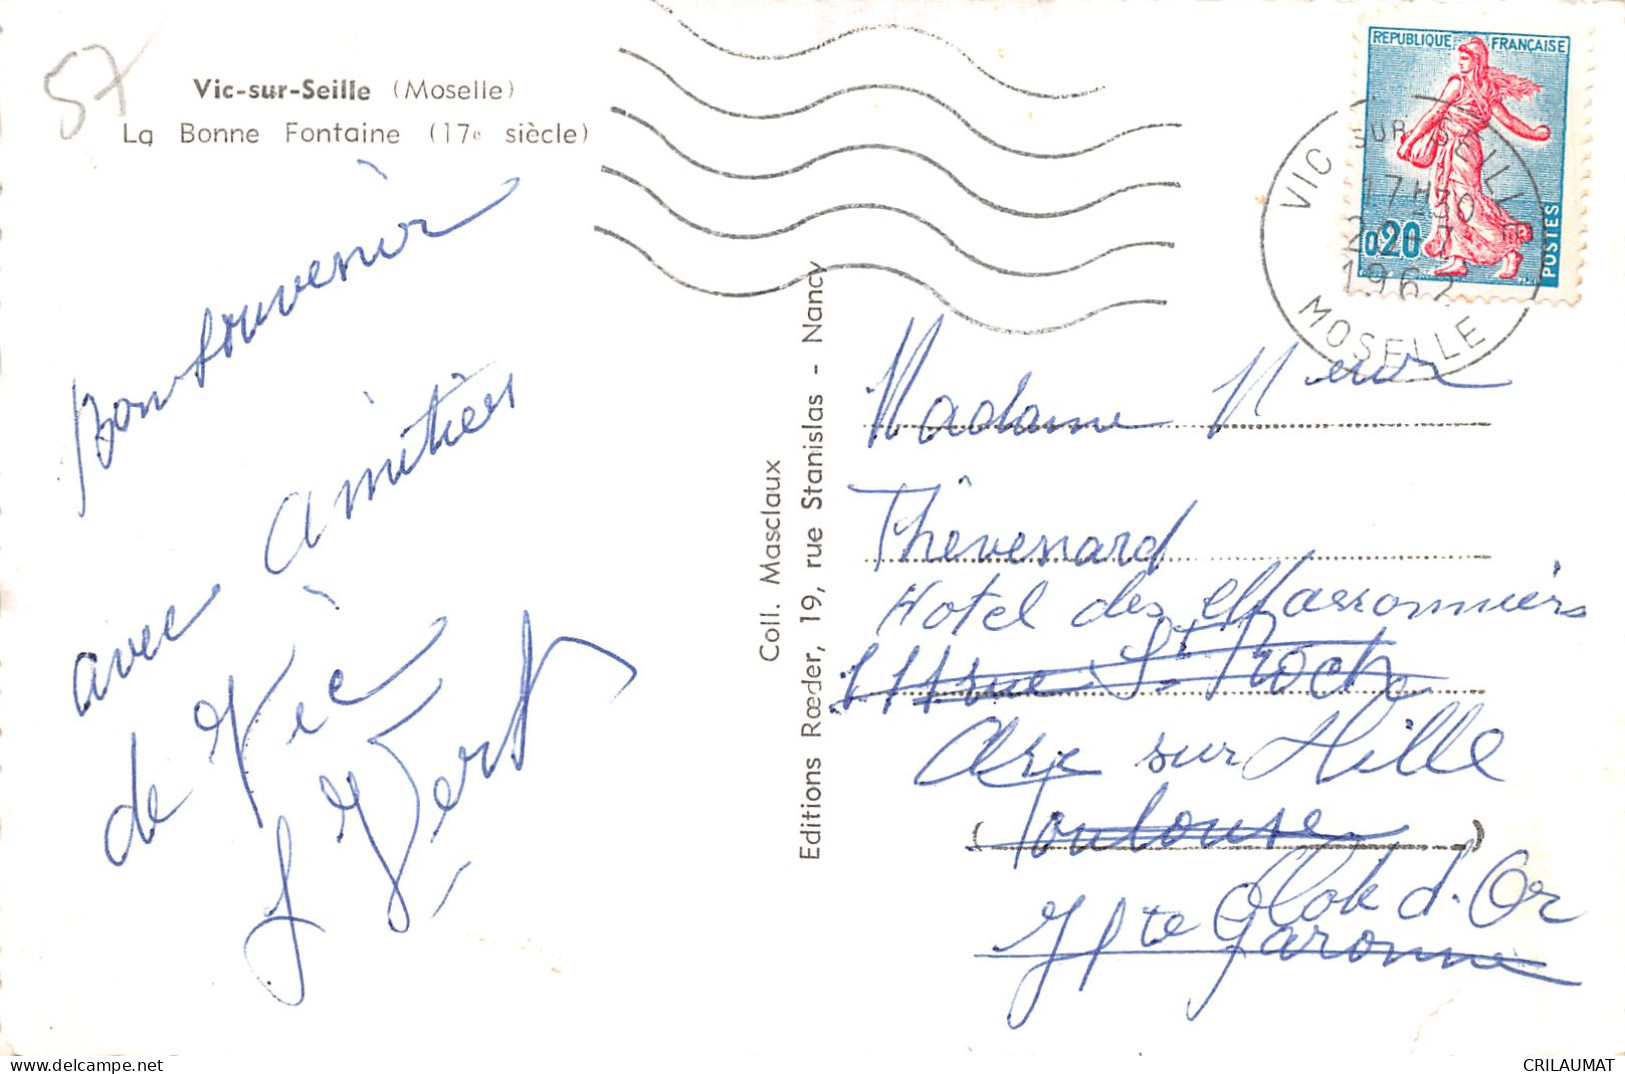 57
Vic-sur-Seille (Moselle)
La Bonne Fontaine (17e siècle)
Bon souvenir
avec amitiés
de Vic
J Vert
Coll. Masclaux
Editions Rœder, 19, rue Stanislas - Nancy
REPUBLIQUE FRANÇAISE
0,20
POSTES
VIC SUR SEILLE
17H30
2-7
1962
MOSELLE
Madame
Thévenard
Hotel des Marronniers
rue St Roch
Arc sur Tille
(Toulouse)
Cote d'Or
Hte Garonne
CRILAUMAT